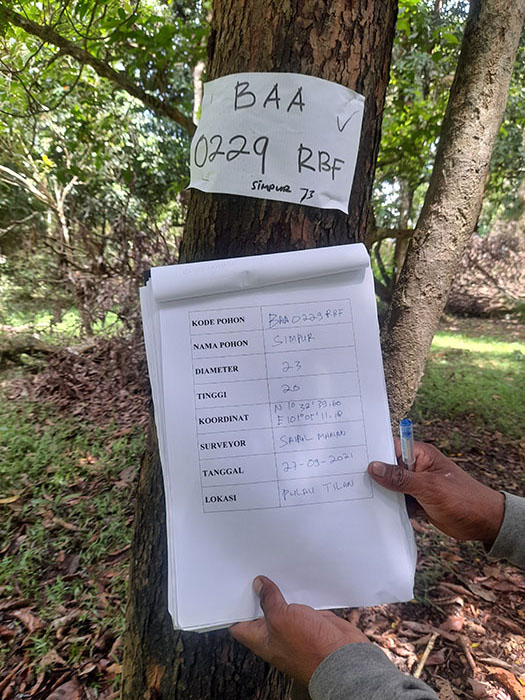 BAA
0229 RBF
SIMPUR 73
KODE POHON BAA 0229 RBF
NAMA POHON SIMPUR
DIAMETER 23
TINGGI 20
KOORDINAT N 1° 32' 39.60
E 101°05' 11.18
SURVEYOR
TANGGAL 27-09-2021
LOKASI PULAU TILAN